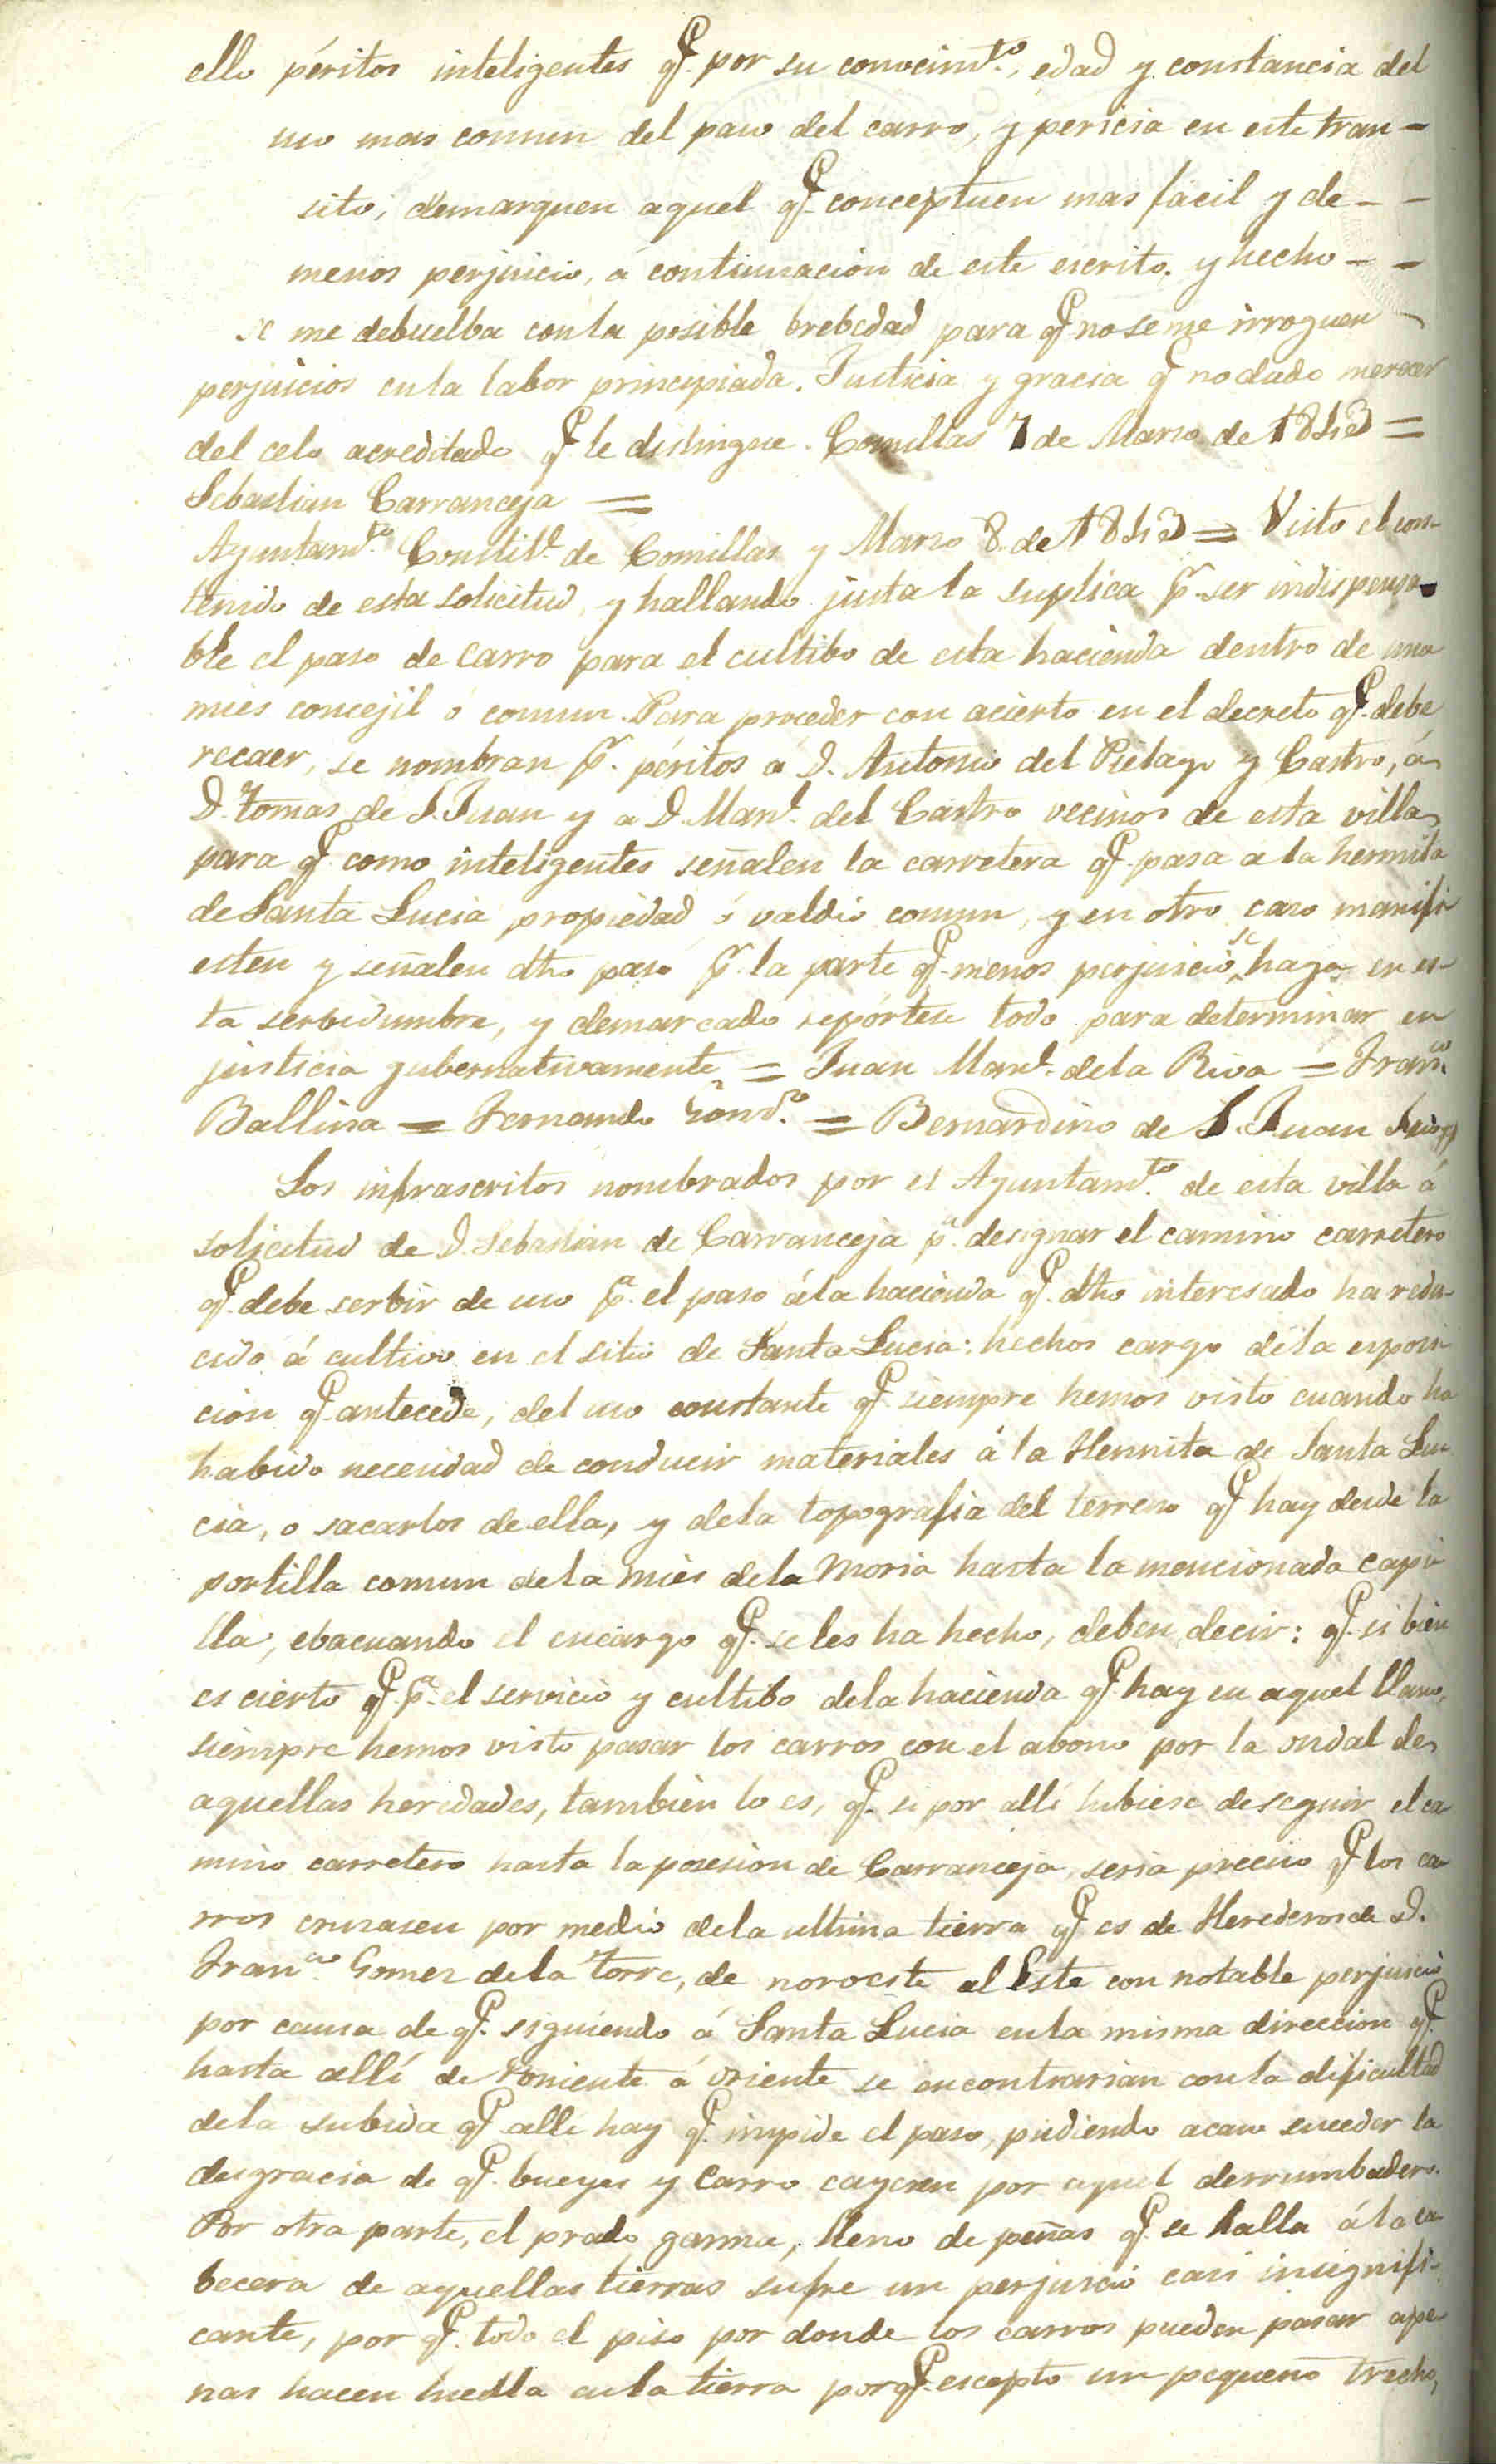 ello péritos inteligentes q.e por su conocim.to, edad y constancia del
uso mas comun del paso del carro, y pericia en este tran-
sito, demarquen aquel q.e conceptuen mas fácil y de - -
menos perjuicio, á continuacion de este escrito, y hecho - -
se me debuelba con la posible brebedad para q.e no se me irroguen
perjuicios en la labor principiada. Justicia y gracia q.e no dudo merecer
del celo acreditado q.e le distingue. Comillas 7 de Marzo de 1843 =
Sebastian Carranceja =
Ayuntam.to Constit.l de Comillas y Marzo 8 de 1843 = Visto el con-
tenido de esta solicitud, y hallando justa la suplica p.r ser indispensa-
ble el paso de carro para el cultibo de esta hacienda dentro de una
mies concejil ó comun. Para proceder con acierto en el decreto q.e debe
recaer, se nombran p.r péritos á D. Antonio del Piélago y Castro, á
D. Tomas de S. Juan y a D. Man.l del Castro vecinos de esta villa,
para q.e como inteligentes señalen la carretera q.e pasa a la hermita
de Santa Lucia propiedad ó valdio comun, y en otro caso manifi
esten y señalen dho paso p.r la parte q.e menos perjuicio se haga en es-
ta serbidumbre, y demarcado repórtese todo para determinar en
justicia gubernativamente = Juan Man.l de la Riva = Fran.co
Ballina = Fernando = Bernardino de S. Juan
Los infrascritos nombrados por el Ayuntam.to de esta villa á
solicitud de D. Sebastian de Carranceja p.a designar el camino carretero
q.e debe serbir de uso p.a el paso á la hacienda q.e dho interesado ha redu-
cido á cultivo en el sitio de Santa Lucia: hechos cargo de la esposi
cion q.e antecede, del uso constante q.e siempre hemos visto cuando ha
habido necesidad de conducir materiales á la Hermita de Santa Lu
cia, o sacarlos de ella, y de la topografia del terreno q.e hay desde la
portilla comun de la Mies de la Moria hasta la mencionada capi
lla, ebacuando el encargo q.e se les ha hecho, deben decir: q.e si bien
es cierto q.e p.a el servicio y cultibo de la hacienda q.e hay en aquel llano,
siempre hemos visto pasar los carros con el abono por la ondal de
aquellas heredades, tambien lo es, q.e si por allí hubiese de seguir el ca
mino carretero hasta la posesion de Carranceja, seria preciso q.e los ca
rros cruzasen por medio de la ultima tierra q.e es de Herederos de D.
Fran.co Gomez de la Torre, de noroeste al Este con notable perjuicio
por causa de q.e siguiendo á Santa Lucia en la misma direccion q.e
hasta allí de Poniente á Oriente se encontrarian con la dificultad
de la subida q.e alli hay q.e impide el paso, pudiendo acaso suceder la
desgracia de q.e bueyes y carro cayesen por aquel derrumbadero.
Por otra parte, el prado garma, lleno de peñas q.e se halla á la ca
becera de aquellas tierras sufre un perjuicio casi insignifi-
cante, por q.e todo el piso por donde los carros pueden pasar ape
nas hacen huella en la tierra porq.e escepto un pequeño trecho,